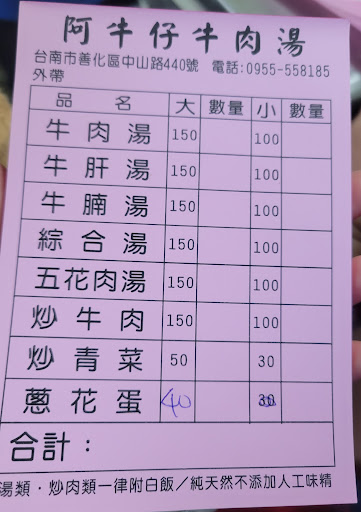 阿牛仔牛肉湯
台南市善化區中山路440號 電話:0955-558185
外帶
品名 大 數量 小 數量
牛肉湯 150 100
牛肝湯 150 100
牛腩湯 150 100
綜合湯 150 100
五花肉湯 150 100
炒牛肉 150 100
炒青菜 50 30
蔥花蛋 40 30
合計：
湯類・炒肉類一律附白飯／純天然不添加人工味精